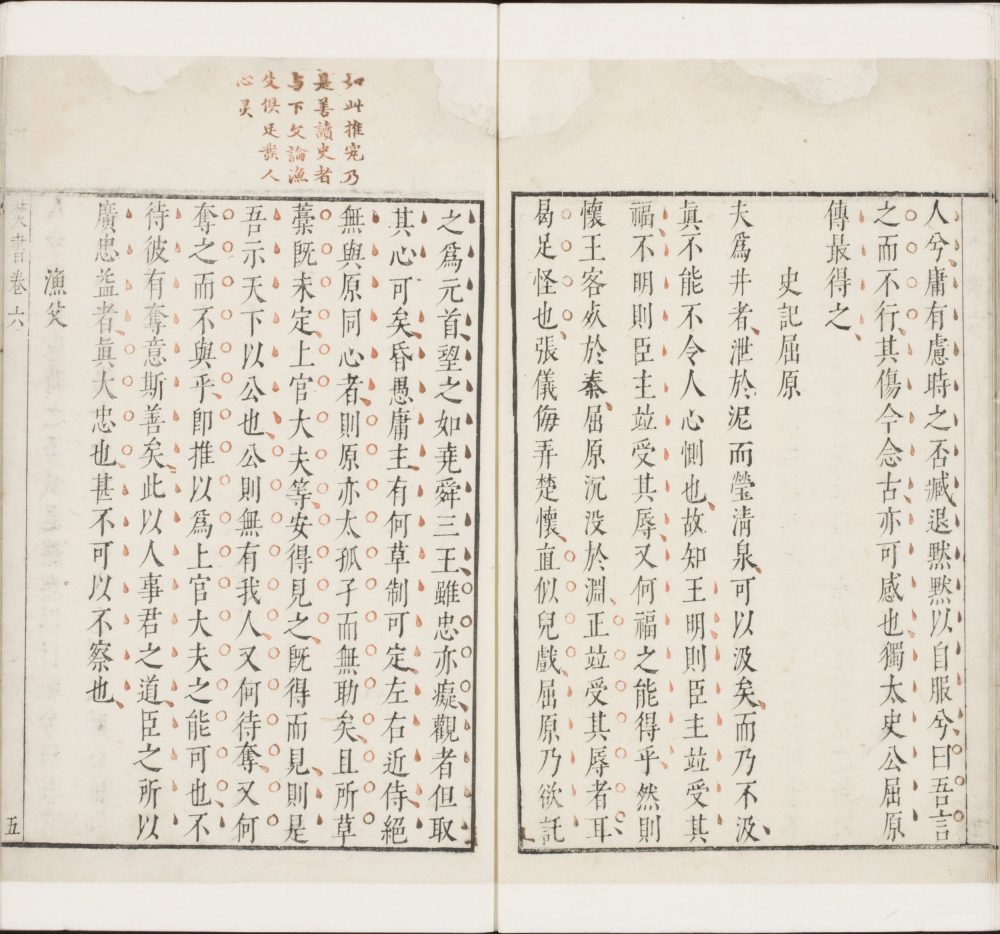 人兮庸有慮時之否臧退默默以自服兮曰吾言
之而不行其傷今念古亦可感也獨太史公屈原
傳最得之
史記屈原
夫爲井者泄於泥而瑩清泉可以汲矣而乃不汲
眞不能不令人心惻也故知王明則臣主竝受其
福不明則臣主竝受其辱又何福之能得乎然則
懷王客死於秦屈原沉没於淵正竝受其辱者耳
曷足怪也張儀侮弄楚懷直似兒戲屈原乃欲託
如此推究乃
是善讀史者
与下文論漁
父俱足發人
心灵
之爲元首望之如堯舜三王雖忠亦癡觀者但取
其心可矣昏愚庸主有何草制可定左右近侍絕
無與原同心者則原亦太孤孑而無助矣且所草
藳既未定上官大夫等安得見之既得而見則是
吾示天下以公也公則無有我人又何待奪又何
奪之而不與乎卽推以爲上官大夫之能可也不
待彼有奪意斯善矣此以人事君之道臣之所以
廣忠益者眞大忠也甚不可以不察也
漁父
焚書卷六
五